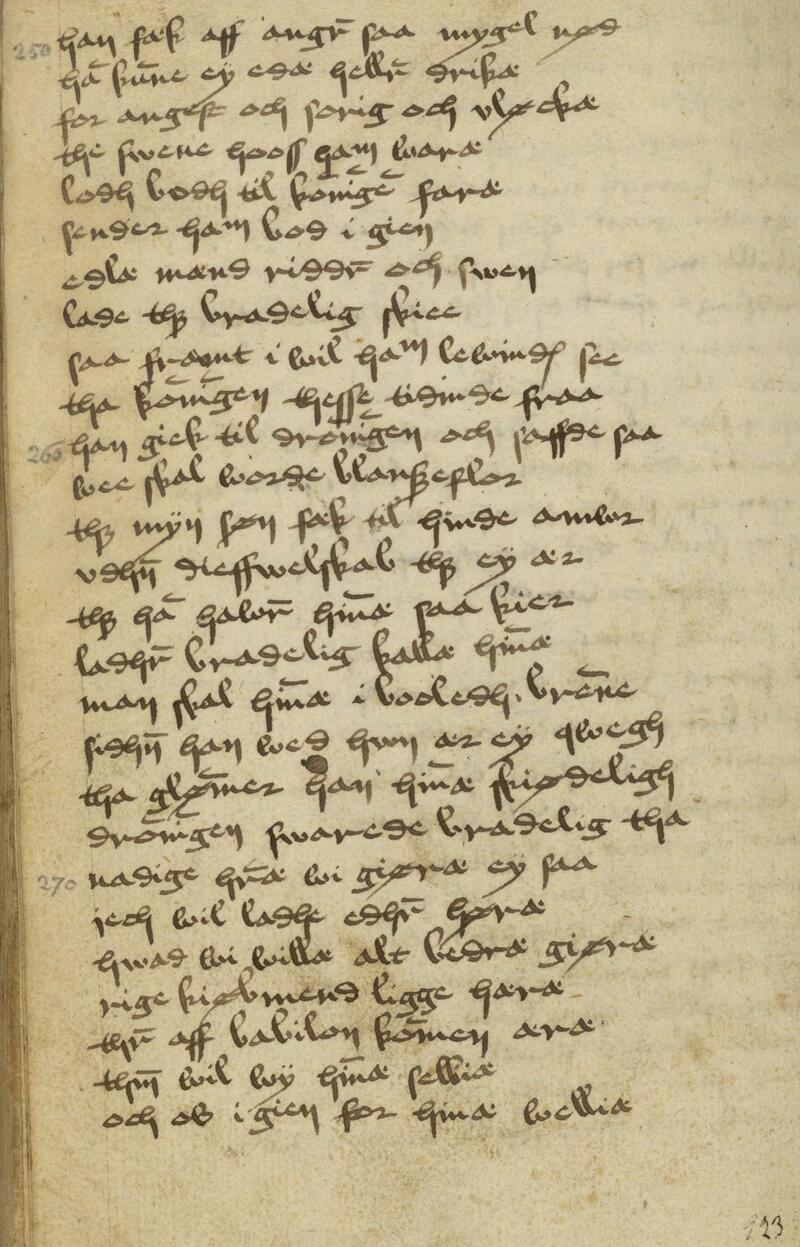 250 han fæk aff angr̄ saa mygel nød
hā kūne ey edæ hellr̄ drikæ
for angest och sorig och vløckæ
the swene hooss ham waræ
lodh bodh til kōnīgē faræ
sender ham bod i gien
edlæ mænd riddr̄ och swen
lade thꝫ bradelig skiee
saa framt i wil ham lewindꝭ see
tha kōnīgen thesse tidinde fraa
260 han giek til drōnīgen och saffde saa
wee skal worde blantzeflor
thꝫ myn søn fæk til hinde amwor
vdhn̄ dieffwelskab thꝫ ey ær
thꝫ hā hawr̄ hīnæ saa kier
ladhr̄ bradelig kallæ hīnæ
man skal hīnæ i booledh brēne
sidhn̄ han wed hwn ær ey qwegh
tha glø̄mer han hīnæ skiødeligh
drōnīgen swarede bradelig tha
270 nadige hr̄æ wi giøræ ey saa
jech wil ladhe edhr̄ høræ
hwad wi willæ alt bedræ giøræ
rige kiøbmend ligge hæræ
thr̄ aff babilon kōmen æræ
thm̄ wil wy hīnæ selliæ
och ob i gien for hinæ welliæ
123